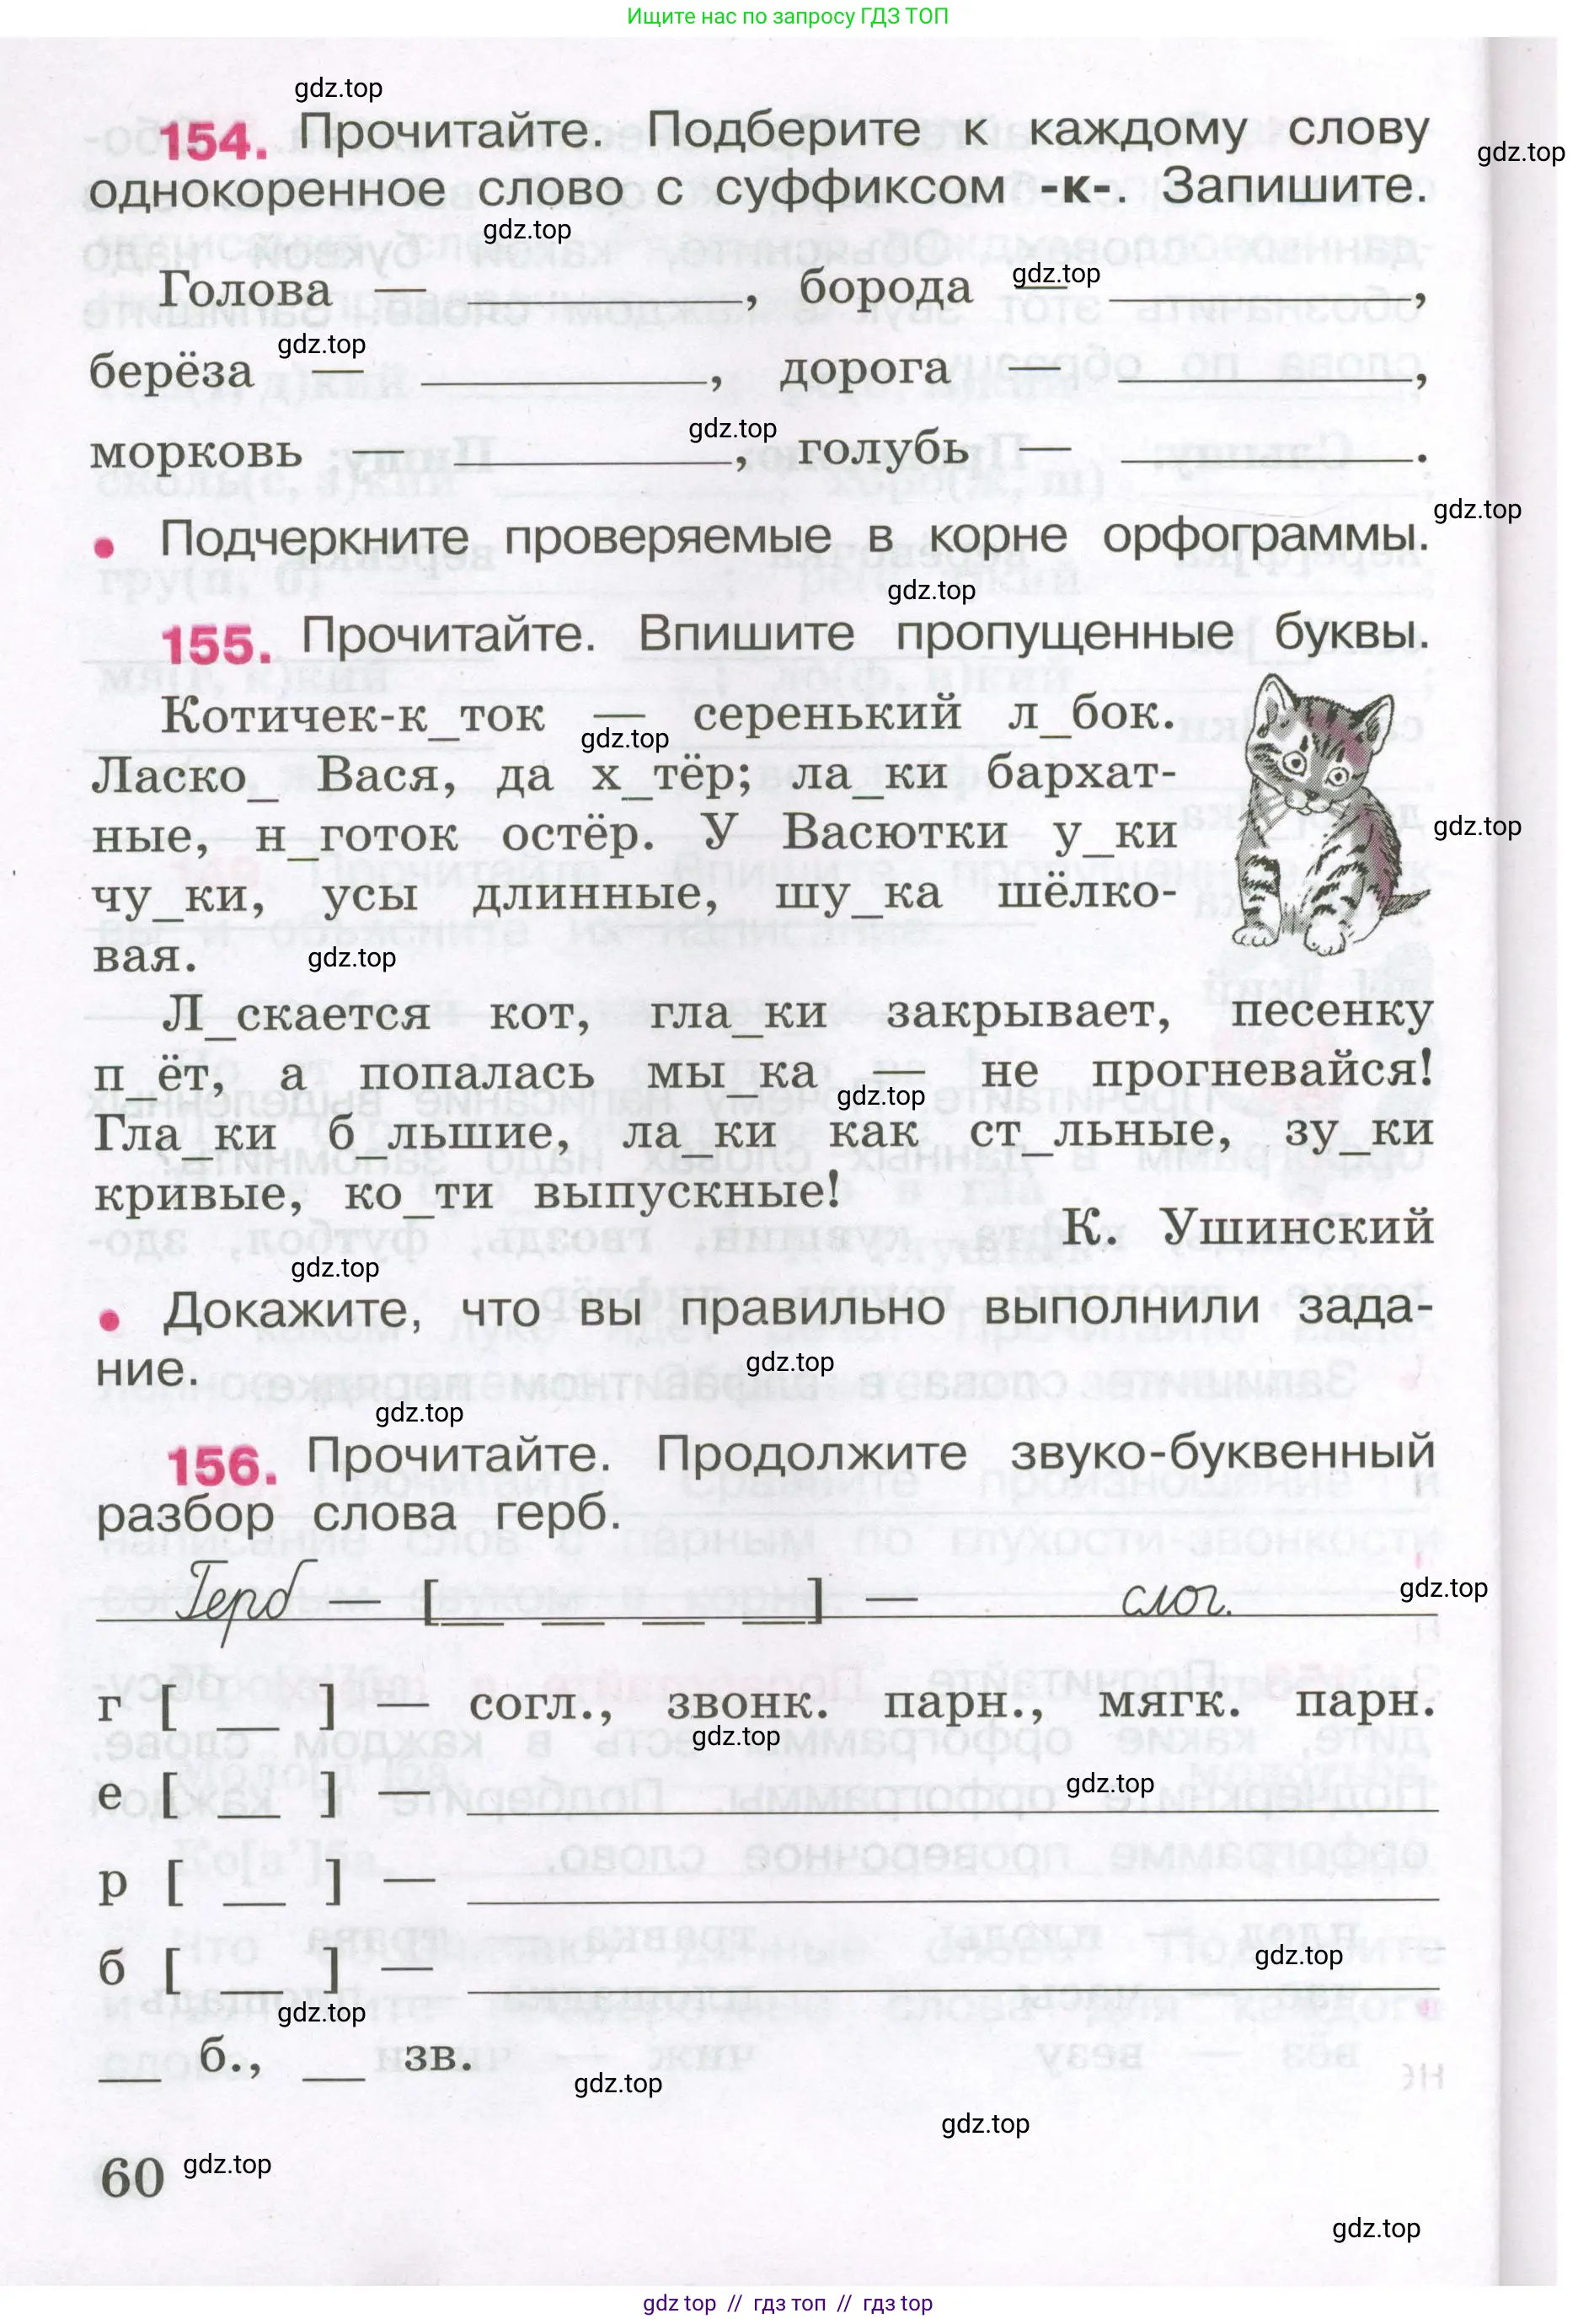 Ищите нас по запросу ГДЗ ТОП
gdz.top
154. Прочитайте. Подберите к каждому слову
gdz.top
однокоренное слово с суффиксом -к-. Запишите.
gdz.top
gdz.top
Голова — ____, борода — ____,
gdz.top
берёза — ____, дорога — ____,
gdz.top
морковь — ____, голубь — ____.
gdz.top
• Подчеркните проверяемые в корне орфограммы.
gdz.top
155. Прочитайте. Впишите пропущенные буквы.
Котичек-к_ток — серенький л_бок.
gdz.top
Ласко_ Вася, да х_тёр; ла_ки бархат-
ные, н_готок остёр. У Васютки у_ки
gdz.top
чу_ки, усы длинные, шу_ка шёлко-
вая.
gdz.top
Л_скается кот, гла_ки закрывает, песенку
п_ёт, а попалась мы_ка — не прогневайся!
gdz.top
Гла_ки б_льшие, ла_ки как ст_льные, зу_ки
кривые, ко_ти выпускные!
К. Ушинский
gdz.top
• Докажите, что вы правильно выполнили зада-
ние.
gdz.top
gdz.top
156. Прочитайте. Продолжите звуко-буквенный
разбор слова герб.
Герб — [__ __ __ __] — слог.
gdz.top
г [ __ ] — согл., звонк. парн., мягк. парн.
gdz.top
gdz.top
е [ __ ] — ____
р [ __ ] — ____
gdz.top
б [ __ ] — ____
gdz.top
__ б., __ зв.
gdz.top
gdz.top
60
gdz.top
gdz.top
gdz top // гдз топ // гдз top